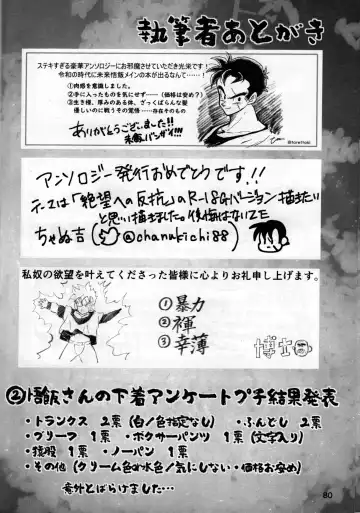 執筆者あとがき
ステキすぎる豪華アンソロジーにお邪魔させていただき光栄です!
令和の時代に未来悟飯メインの本が出るなんて……!
①肉感を意識しました。
②手に入ったものを気にせず……(価格は安め?)
③生き様、厚みのある体、ざっくばらんな髪
優しいのに戦うその覚悟……存在そのもの
ありがとうございました!!
未飯バンザイ!!!
アンソロジー発行おめでとうです!!
テーマは「絶望への反抗」のR-18Gバージョン描きたい
と思い描きました。後悔はないZE
ちゃぬ吉
@chanukichi88
私奴の欲望を叶えてくださった皆様に心よりお礼申し上げます。
①暴力
②褌
③幸薄
博士
②悟飯さんの下着アンケートプチ結果発表
・トランクス 2票 (白/色指定なし) ・ふんどし 2票
・ブリーフ 1票 ・ボクサーパンツ 1票 (文字入り)
・猿股 1票 ・ノーパン 1票
・その他 (クリーム色or水色/気にしない・価格お安め)
意外とばらけました…
80